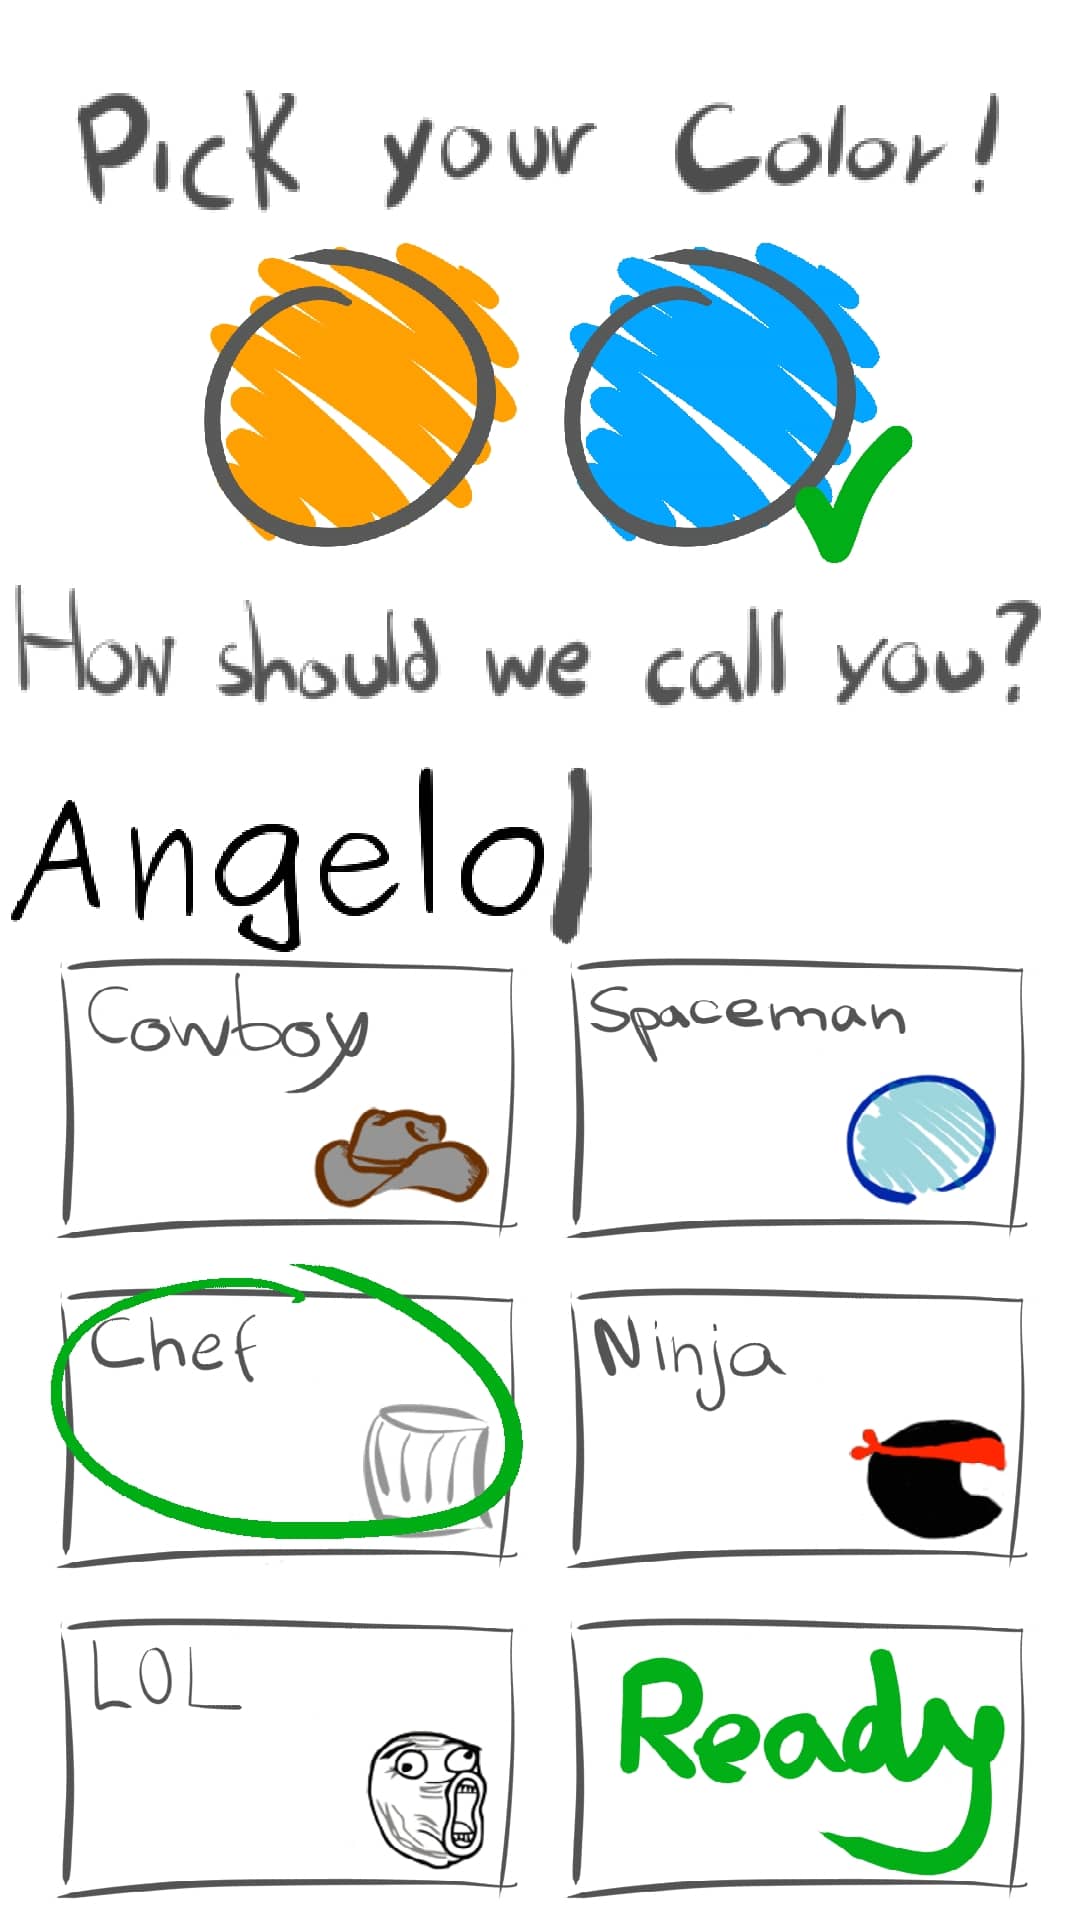 Pick your Color!
How should we call you?
Angelo
Cowboy
Spaceman
Chef
Ninja
LOL
Ready